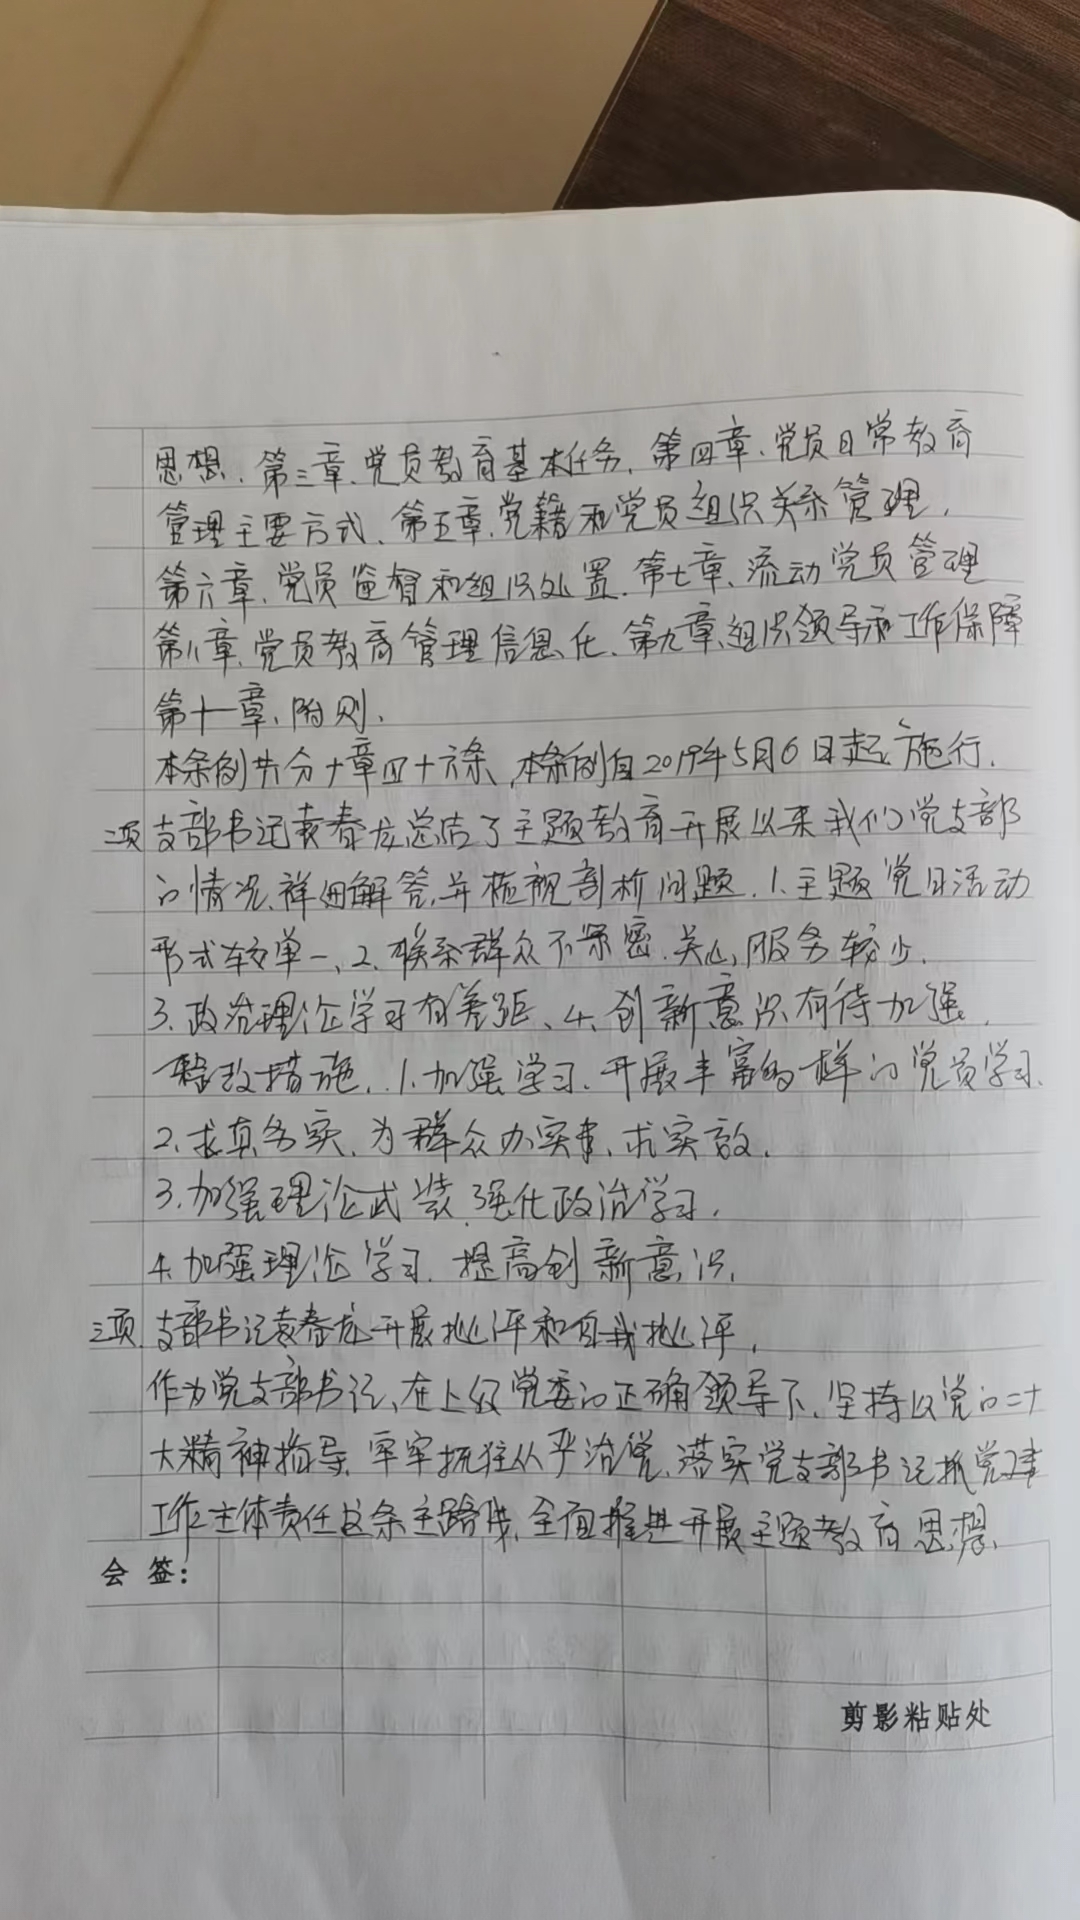 思想、第三章、党员教育基本任务、第四章、党员日常教育
管理主要方式、第五章、党籍和党员组织关系管理、
第六章、党员监督和组织处置、第七章、流动党员管理
第八章、党员教育管理信息化、第九章、组织领导和工作保障
第十章、附则、
本条例共分十章四十六条、本条例自2019年5月6日起施行、
二项 支部书记袁春龙总结了主题教育开展以来我们党支部
的情况、祥细解答、并检视剖析问题、1、主题党日活动
形式较单一、2、联系群众不紧密、关心服务较少、
3、政治理论学习有差距、4、创新意识有待加强、
整改措施、1、加强学习、开展丰富多样的党员学习、
2、求真务实、为群众办实事、求实效、
3、加强理论武装、强化政治学习、
4、加强理论学习、提高创新意识、
三项 支部书记袁春龙开展批评和自我批评、
作为党支部书记、在上级党委的正确领导下、坚持以党的二十
大精神指导、牢牢抓住从严治党、落实党支部书记抓党建
工作主体责任这条主路线、全面推进开展主题教育思想、
会 签：
剪影粘贴处